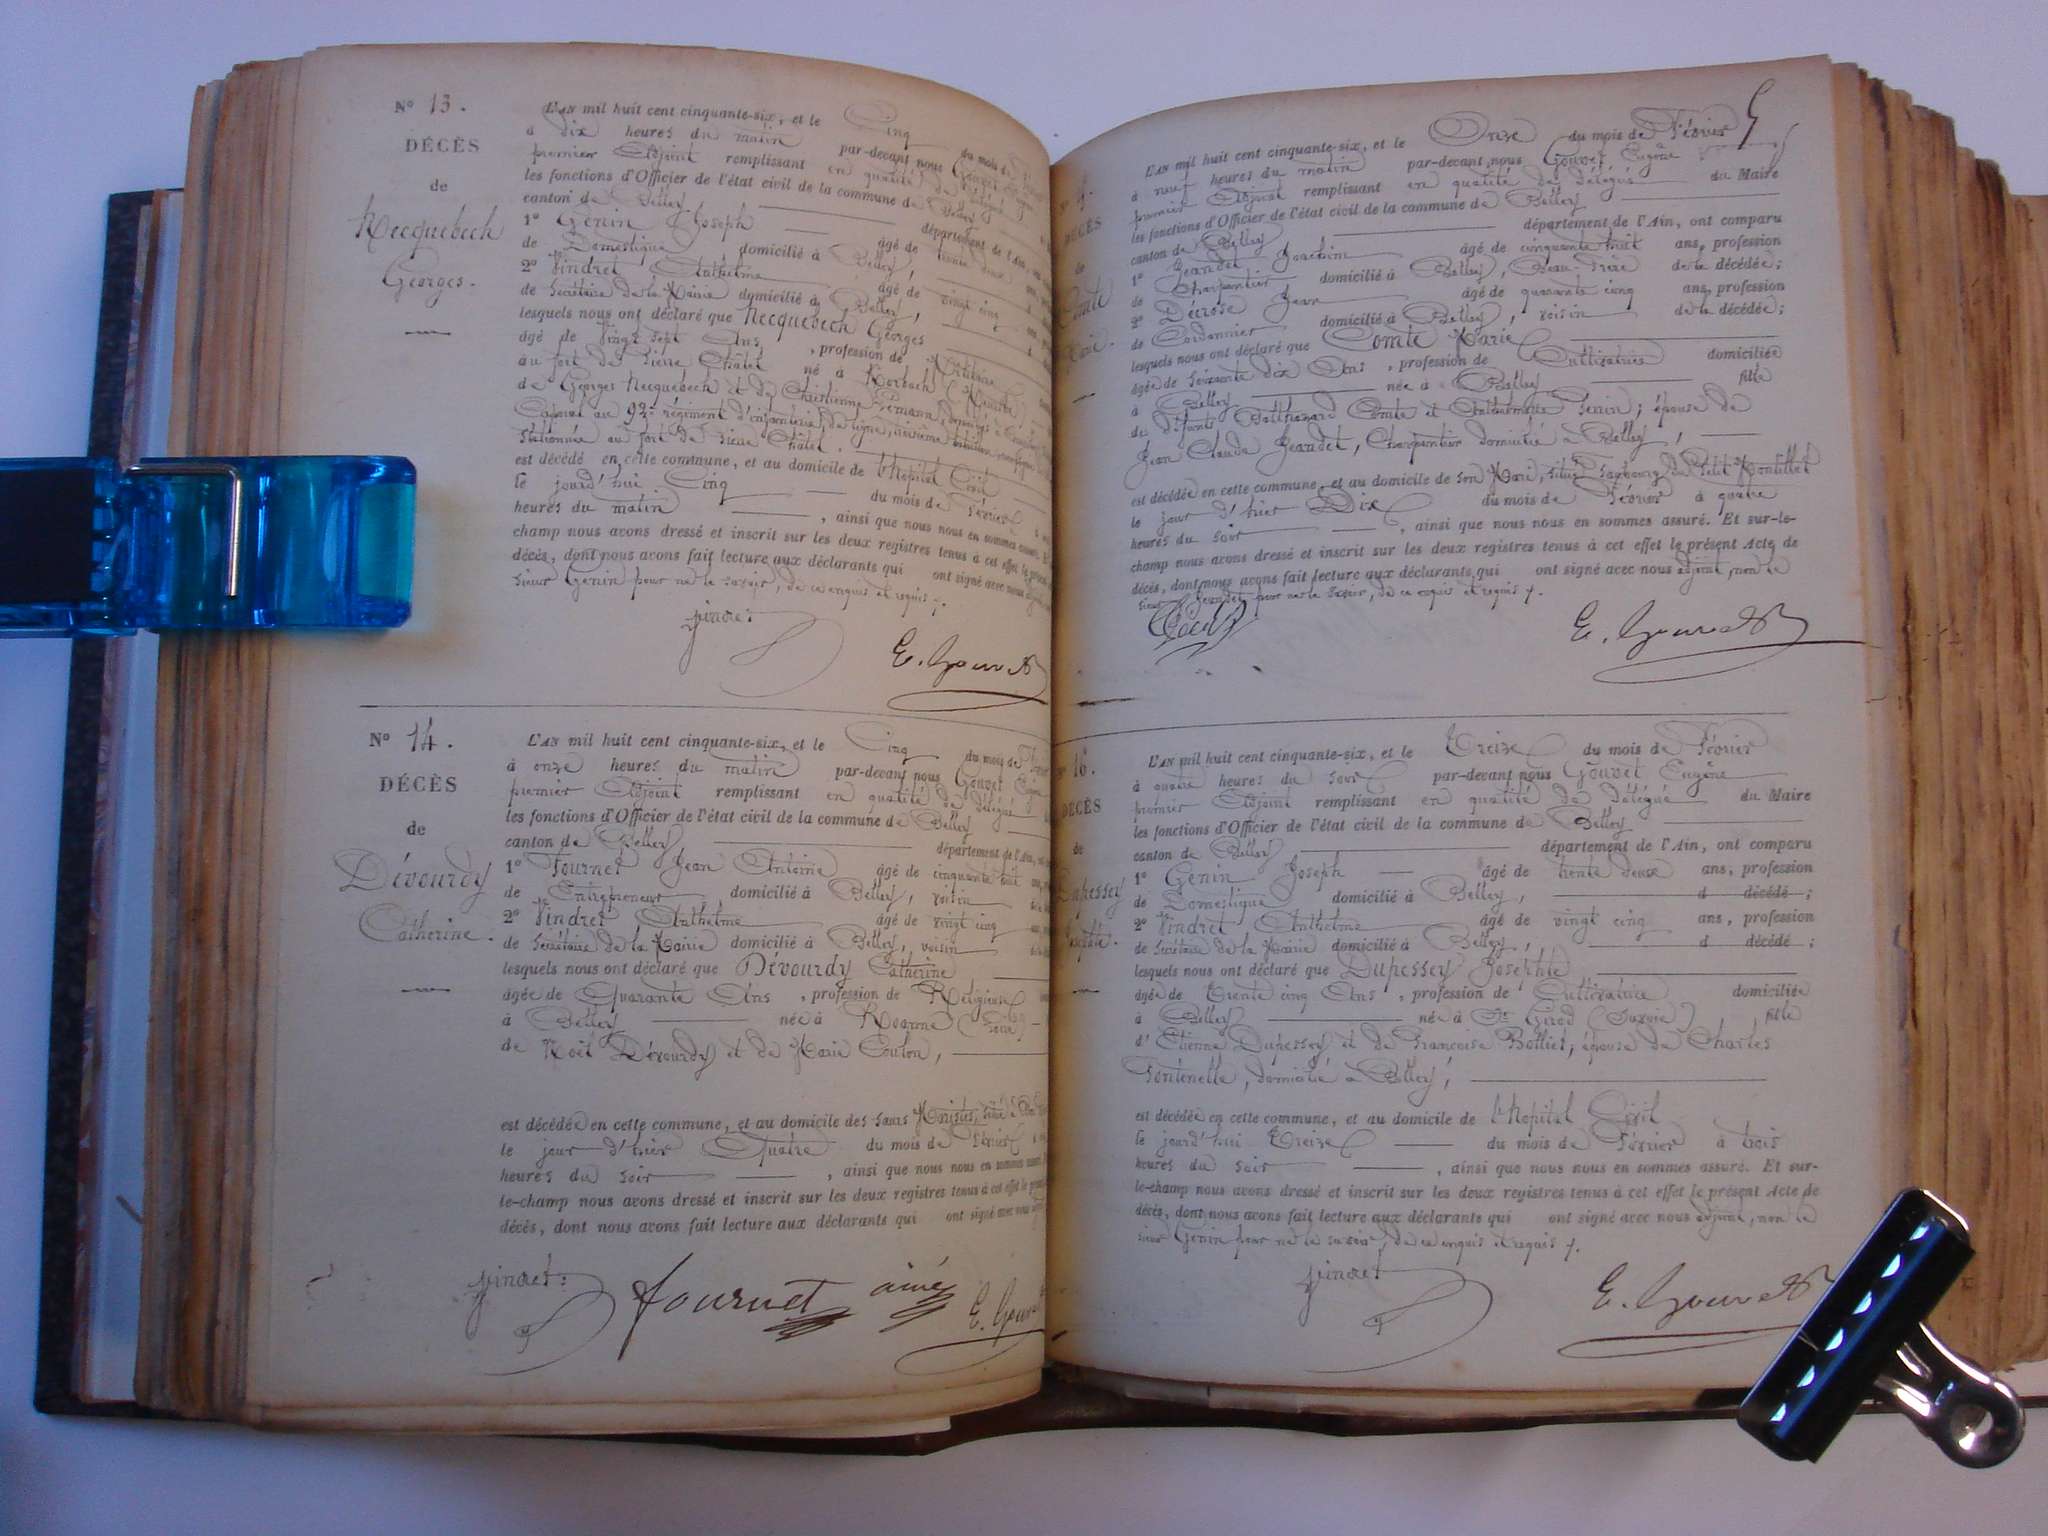 N° 13.
DÉCÈS
de
Necquebech
Georges.
L'AN mil huit cent cinquante-six, et le Cinq du mois de
à dix heures du matin par-devant nous Gouvet
premier Adjoint remplissant en qualité de délégué
les fonctions d'Officier de l'état civil de la commune de Belley
canton de Belley département de l'Ain,
1° Genin Joseph âgé de trente deux
de Domestique domicilié à Belley,
2° Vindret Anthelme âgé de vingt cinq
de Secrétaire de la Mairie domicilié à Belley,
lesquels nous ont déclaré que Necquebech Georges
âgé de Vingt sept Ans , profession de Militaire
au fort de Pierre Châtel né à Rorbach
de Georges Necquebech et de Chrétienne
Caporal au 92e régiment d'infanterie de ligne, troisième bataillon,
stationnée au fort de Pierre Châtel.
est décédé en cette commune, et au domicile de l'hôpital Civil
le jourd'hui Cinq du mois de Février
heures du matin , ainsi que nous nous en sommes
champ nous avons dressé et inscrit sur les deux registres tenus à cet effet le
décès, dont nous avons fait lecture aux déclarants qui ont signé avec nous
sieur Genin pour ne le savoir, de ce enquis et requis.
Vindret
E. Gouvet
N° 14.
DÉCÈS
de
Dévourdy
Catherine.
L'AN mil huit cent cinquante-six, et le Cinq du mois de
à onze heures du matin par-devant nous Gouvet
premier Adjoint remplissant en qualité de délégué
les fonctions d'Officier de l'état civil de la commune de Belley
canton de Belley département de l'Ain,
1° Fournet Jean Antoine âgé de cinquante huit
de Entrepreneur domicilié à Belley, voisin
2° Vindret Anthelme âgé de vingt cinq
de Secrétaire de la Mairie domicilié à Belley, voisin
lesquels nous ont déclaré que Dévourdy Catherine
âgée de Quarante Ans , profession de Religieuse
à Belley née à Roanne (Loire)
de Noël Dévourdy et de Marie Coulon,
est décédée en cette commune, et au domicile des Sœurs Maristes,
le jour d'hier Quatre du mois de Février
heures du soir , ainsi que nous nous en sommes
le-champ nous avons dressé et inscrit sur les deux registres tenus à cet effet le
décès, dont nous avons fait lecture aux déclarants qui ont signé avec nous
Vindret
Fournet aîné
E. Gouvet
DÉCÈS
de
Comte
Marie.
L'AN mil huit cent cinquante-six, et le Onze du mois de Février
à neuf heures du matin par-devant nous Gouvet Eugène
premier Adjoint remplissant en qualité de délégué du Maire
les fonctions d'Officier de l'état civil de la commune de Belley
canton de Belley département de l'Ain, ont comparu
1° Jeandet Joachim âgé de cinquante huit ans, profession
de Charpentier domicilié à Belley, Beau-frère de la décédée;
2° Décrose Jean âgé de quarante cinq ans, profession
de Cordonnier domicilié à Belley, voisin de la décédée;
lesquels nous ont déclaré que Comte Marie
âgée de Soixante dix Ans , profession de Cultivatrice domiciliée
à Belley née à Belley fille
de défunts Balthazard Comte et Anthelmette Perrin; épouse de
Jean Claude Jeandet, Charpentier domicilié à Belley,
est décédée en cette commune, et au domicile de son Mari, situé Faubourg du Petit Montillet
le jour d'hier Dix du mois de Février à quatre
heures du soir , ainsi que nous nous en sommes assuré. Et sur-le-
champ nous avons dressé et inscrit sur les deux registres tenus à cet effet le présent Acte de
décès, dont nous avons fait lecture aux déclarants qui ont signé avec nous adjoint, non le
sieur Jeandet pour ne le savoir, de ce enquis et requis.
E. Gouvet
16.
DÉCÈS
de
Dupessey
Josephte.
L'AN mil huit cent cinquante-six, et le Treize du mois de Février
à quatre heures du soir par-devant nous Gouvet Eugène
premier Adjoint remplissant en qualité de délégué du Maire
les fonctions d'Officier de l'état civil de la commune de Belley
canton de Belley département de l'Ain, ont comparu
1° Genin Joseph âgé de trente deux ans, profession
de Domestique domicilié à Belley, d décédé ;
2° Vindret Anthelme âgé de vingt cinq ans, profession
de Secrétaire de la Mairie domicilié à Belley, d décédé ;
lesquels nous ont déclaré que Dupessey Josephte
âgée de Trente cinq Ans , profession de Cultivatrice domiciliée
à Belley née à St Girod (Savoie), fille
d'Etienne Dupessey et de Françoise Bollier, épouse de Charles
Fontenelle, domicilié à Belley,
est décédée en cette commune, et au domicile de l'hôpital Civil
le jourd'hui Treize du mois de Février à trois
heures du soir , ainsi que nous nous en sommes assuré. Et sur-
le-champ nous avons dressé et inscrit sur les deux registres tenus à cet effet le présent Acte de
décès, dont nous avons fait lecture aux déclarants qui ont signé avec nous adjoint, non le
sieur Genin pour ne le savoir, de ce enquis et requis.
Vindret
E. Gouvet